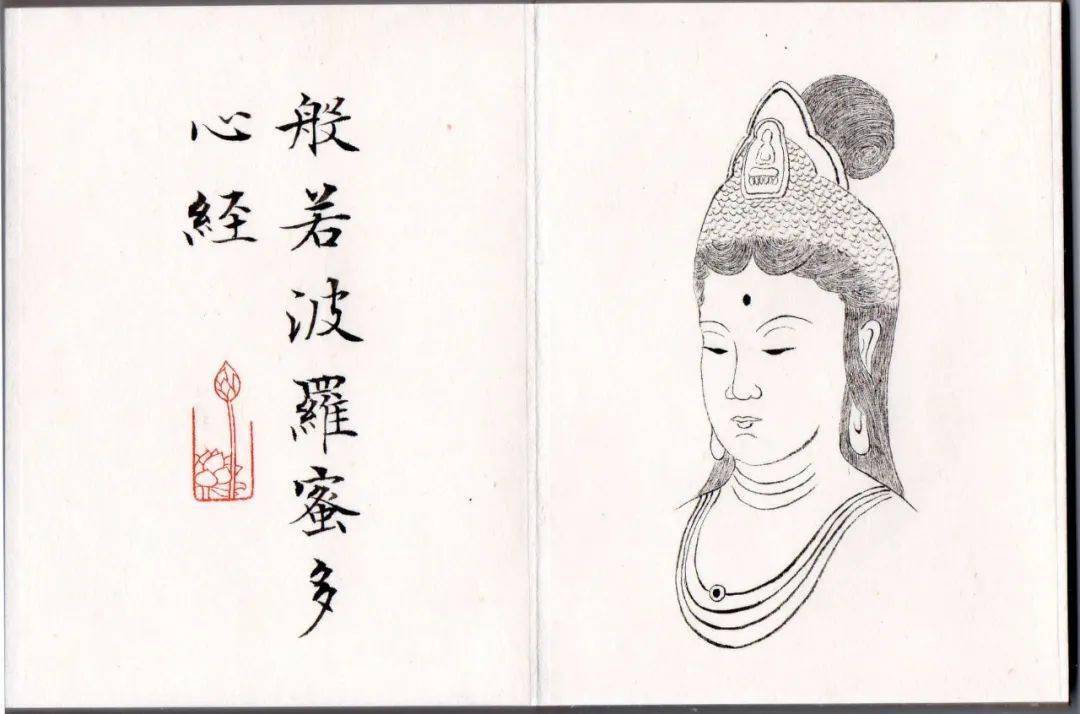 般若波羅蜜多
心経